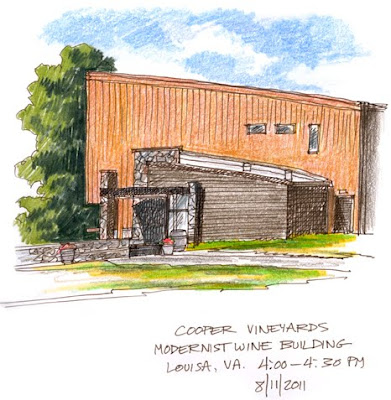 COOPER VINEYARDS
MODERNIST WINE BUILDING
LOUISA, VA. 4:00 – 4:30 PM
8/11/2011